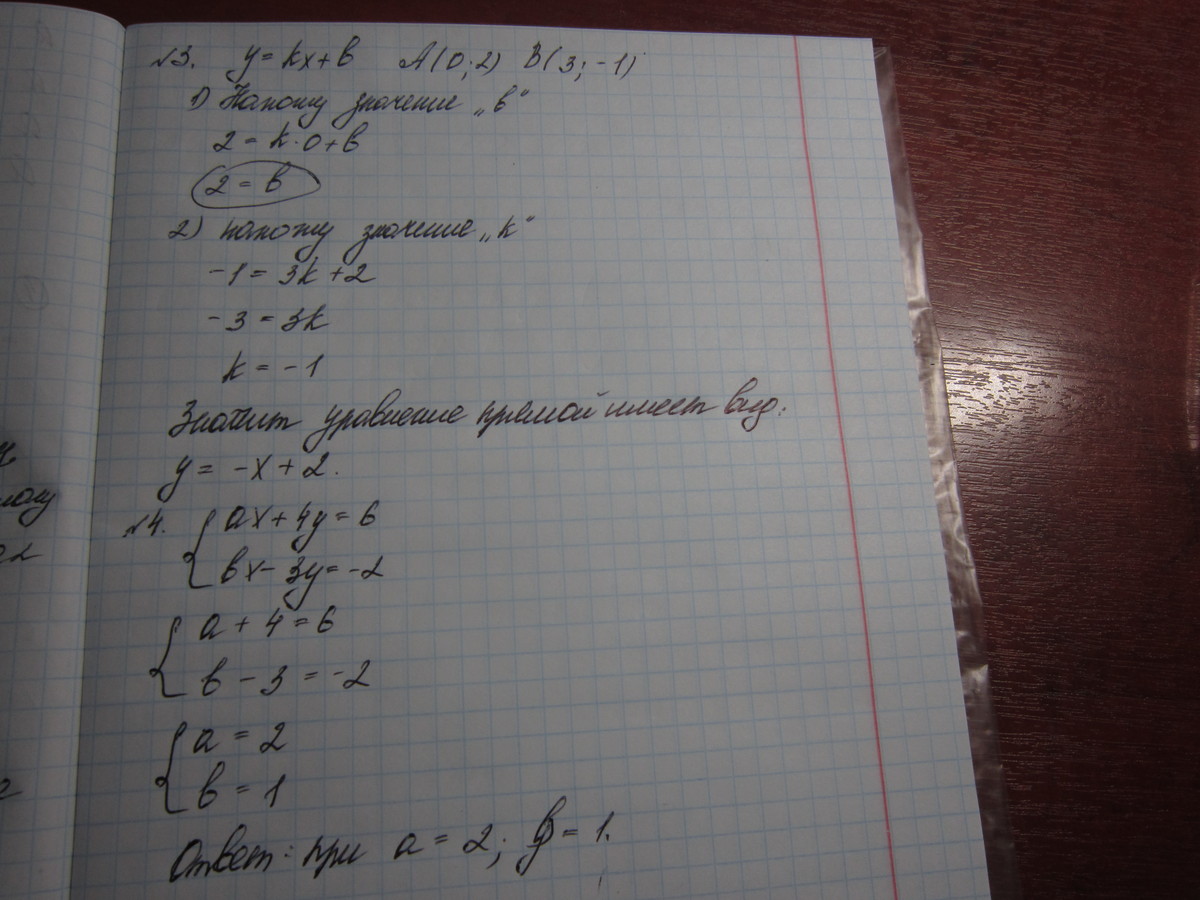 №3. y = kx + b A(0; 2) B(3; -1)
1) Нахожу значение „b“
2 = k·0 + b
2 = b
2) нахожу значение „k“
-1 = 3k + 2
-3 = 3k
k = -1
Значит уравнение прямой имеет вид:
y = -x + 2.
№4. { ax + 4y = 6
bx - 3y = -2
{ a + 4 = 6
b - 3 = -2
{ a = 2
b = 1
Ответ: при a = 2; b = 1.